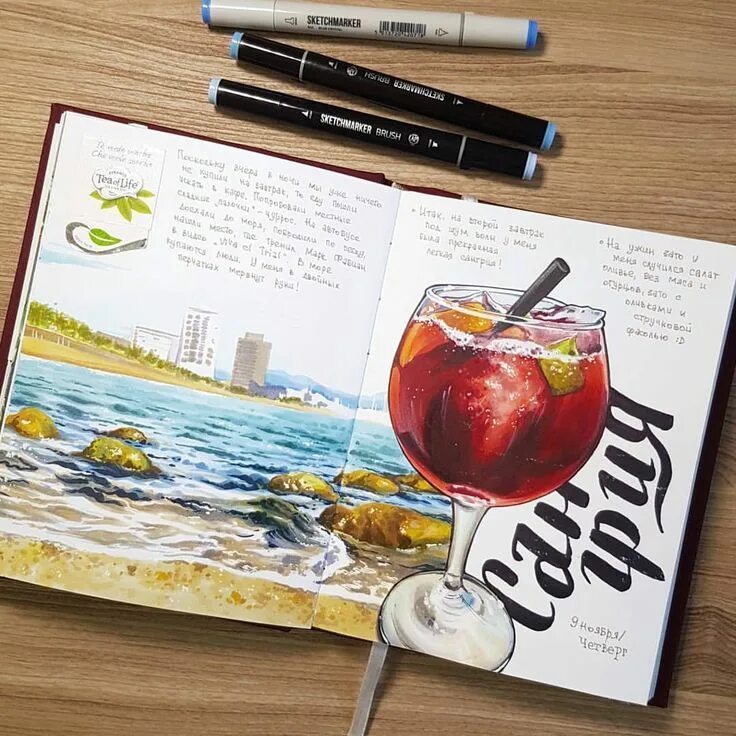 SKETCHMARKER
SKETCHMARKER BRUSH
SKETCHMARKER BRUSH
Tea of Life
Поскольку вчера в ночи мы уже ничего
не купили на завтрак, то еду пошли
искать в кафе. Попробовали местные
сладкие "палочки" - чуррос. На автобусе
доехали до моря, побродили по песку,
нашли место, где Марк Фабиан
в видео "Viva el Trial". В море
купаются люди. У меня в двойных
перчатках мерзнут руки!
• Итак, на второй завтрак
под шум волн у меня
была прекрасная
легкая сангрия!
• На ужин зато у
меня случился салат
оливье, без мяса и
огурцов, зато с
оливками и
стручковой
фасолью :D
Сан
грия
9 ноября/
Четверг